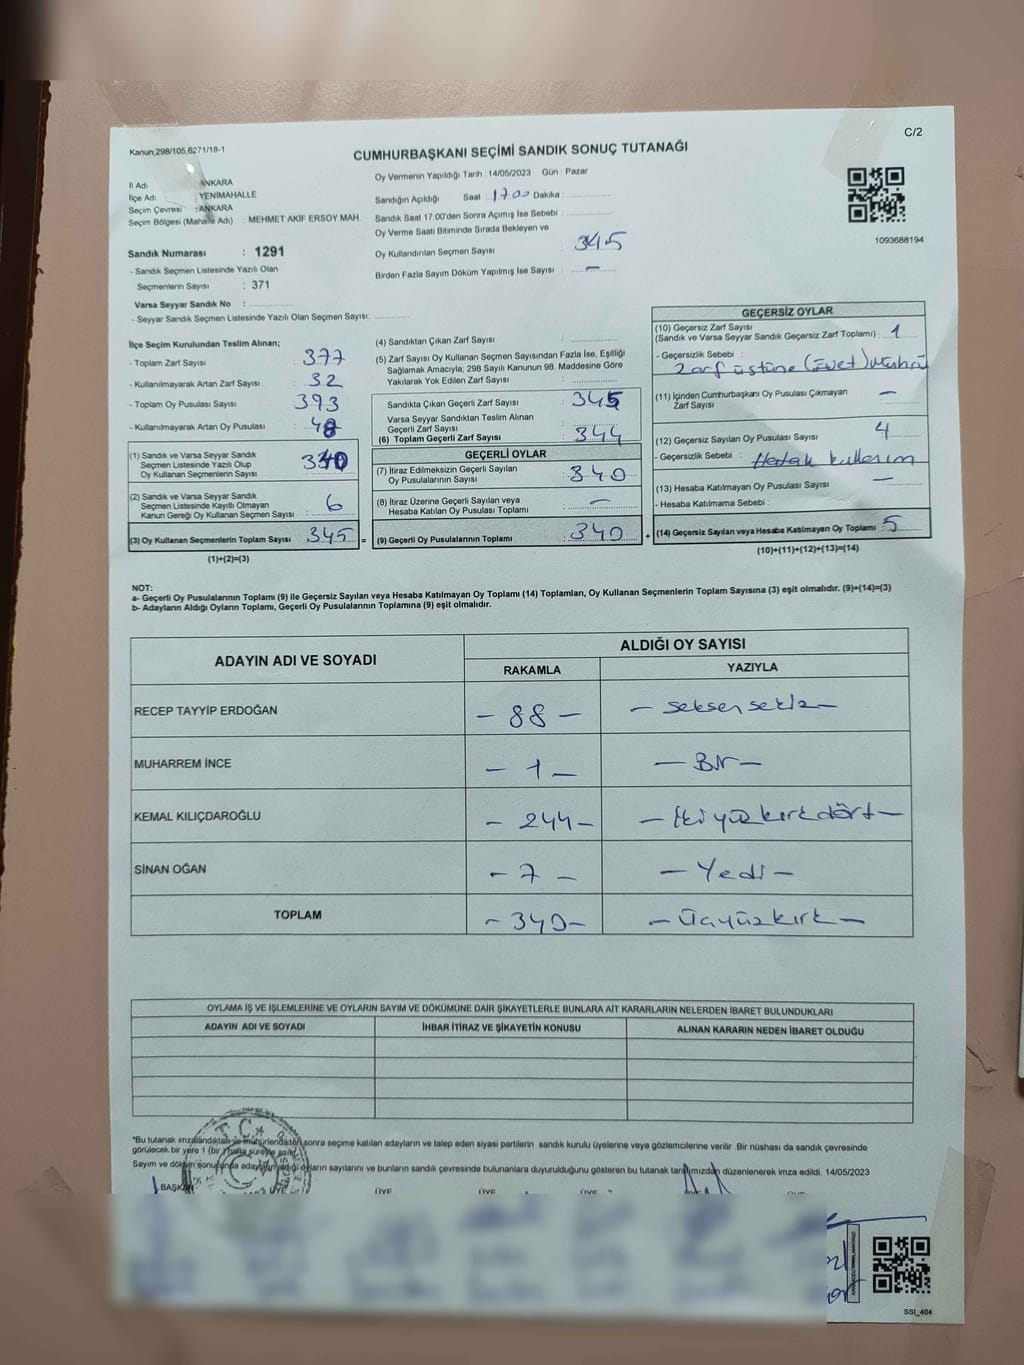 C/2
Kanun,298/105,6271/18-1
CUMHURBAŞKANI SEÇİMİ SANDIK SONUÇ TUTANAĞI
İl Adı : ANKARA
İlçe Adı : YENİMAHALLE
Seçim Çevresi : ANKARA
Seçim Bölgesi (Mahalle Adı) : MEHMET AKİF ERSOY MAH.
Sandık Numarası : 1291
- Sandık Seçmen Listesinde Yazılı Olan
Seçmenlerin Sayısı : 371
Varsa Seyyar Sandık No :
- Seyyar Sandık Seçmen Listesinde Yazılı Olan Seçmen Sayısı:
Oy Vermenin Yapıldığı Tarih : 14/05/2023 Gün : Pazar
Sandığın Açıldığı Saat : 17:00 Dakika :
Sandık Saat 17:00'den Sonra Açımış İse Sebebi :
Oy Verme Saati Bitiminde Sırada Bekleyen ve
Oy Kullandırılan Seçmen Sayısı : 345
Birden Fazla Sayım Döküm Yapılmış İse Sayısı : —
1093688194
İlçe Seçim Kurulundan Teslim Alınan;
- Toplam Zarf Sayısı : 377
- Kullanılmayarak Artan Zarf Sayısı : 32
- Toplam Oy Pusulası Sayısı : 393
- Kullanılmayarak Artan Oy Pusulası : 48
(1) Sandık ve Varsa Seyyar Sandık
Seçmen Listesinde Yazılı Olup
Oy Kullanan Seçmenlerin Sayısı :
(2) Sandık ve Varsa Seyyar Sandık
Seçmen Listesinde Kayıtlı Olmayan
Kanun Gereği Oy Kullanan Seçmen Sayısı : 6
(3) Oy Kullanan Seçmenlerin Toplam Sayısı : 345
(1)+(2)=(3)
=
(4) Sandıktan Çıkan Zarf Sayısı :
(5) Zarf Sayısı Oy Kullanan Seçmen Sayısından Fazla İse, Eşitliği
Sağlamak Amacıyla; 298 Sayılı Kanunun 98. Maddesine Göre
Yakılarak Yok Edilen Zarf Sayısı :
Sandıkta Çıkan Geçerli Zarf Sayısı : 345
Varsa Seyyar Sandıktan Teslim Alınan
Geçerli Zarf Sayısı :
(6) Toplam Geçerli Zarf Sayısı : 344
GEÇERLİ OYLAR
(7) İtiraz Edilmeksizin Geçerli Sayılan
Oy Pusulalarının Sayısı : 340
(8) İtiraz Üzerine Geçerli Sayılan veya
Hesaba Katılan Oy Pusulası Toplamı : —
(9) Geçerli Oy Pusulalarının Toplamı : 340
+
GEÇERSİZ OYLAR
(10) Geçersiz Zarf Sayısı
(Sandık ve Varsa Seyyar Sandık Geçersiz Zarf Toplamı) : 1
- Geçersizlik Sebebi :
Zarf üstüne (Evet) Mührü
(11) İçinden Cumhurbaşkanı Oy Pusulası Çıkmayan
Zarf Sayısı : —
(12) Geçersiz Sayılan Oy Pusulası Sayısı : 4
- Geçersizlik Sebebi : Hatalı kullanım
(13) Hesaba Katılmayan Oy Pusulası Sayısı : —
- Hesaba Katılmama Sebebi :
(14) Geçersiz Sayılan veya Hesaba Katılmayan Oy Toplamı : 5
(10)+(11)+(12)+(13)=(14)
NOT:
a- Geçerli Oy Pusulalarının Toplamı (9) ile Geçersiz Sayılan veya Hesaba Katılmayan Oy Toplamı (14) Toplamları, Oy Kullanan Seçmenlerin Toplam Sayısına (3) eşit olmalıdır. (9)+(14)=(3)
b- Adayların Aldığı Oyların Toplamı, Geçerli Oy Pusulalarının Toplamına (9) eşit olmalıdır.
ADAYIN ADI VE SOYADI
ALDIĞI OY SAYISI
RAKAMLA YAZIYLA
RECEP TAYYİP ERDOĞAN – 88 – – seksen sekiz –
MUHARREM İNCE – 1 – – Bir –
KEMAL KILIÇDAROĞLU – 244 – – İki yüz kırk dört –
SİNAN OĞAN – 7 – – Yedi –
TOPLAM – 340 – – Üçyüz kırk –
OYLAMA İŞ VE İŞLEMLERİNE VE OYLARIN SAYIM VE DÖKÜMÜNE DAİR ŞİKAYETLERLE BUNLARA AİT KARARLARIN NELERDEN İBARET BULUNDUKLARI
ADAYIN ADI VE SOYADI İHBAR İTİRAZ VE ŞİKAYETİN KONUSU ALINAN KARARIN NEDEN İBARET OLDUĞU
*Bu tutanak imzalandıktan ve mühürlendikten sonra seçime katılan adayların ve talep eden siyasi partilerin sandık kurulu üyelerine veya gözlemcilerine verilir. Bir nüshası da sandık çevresinde
görülecek bir yere 1 (bir) hafta süreyle asılır.
Sayım ve döküm sonucunda adayların aldığı oyların sayılarını ve bunların sandık çevresinde bulunanlara duyurulduğunu gösteren bu tutanak tarafımızdan düzenlenerek imza edildi. 14/05/2023
BAŞKAN ÜYE ÜYE ÜYE ÜYE
T.C.
SSI_404